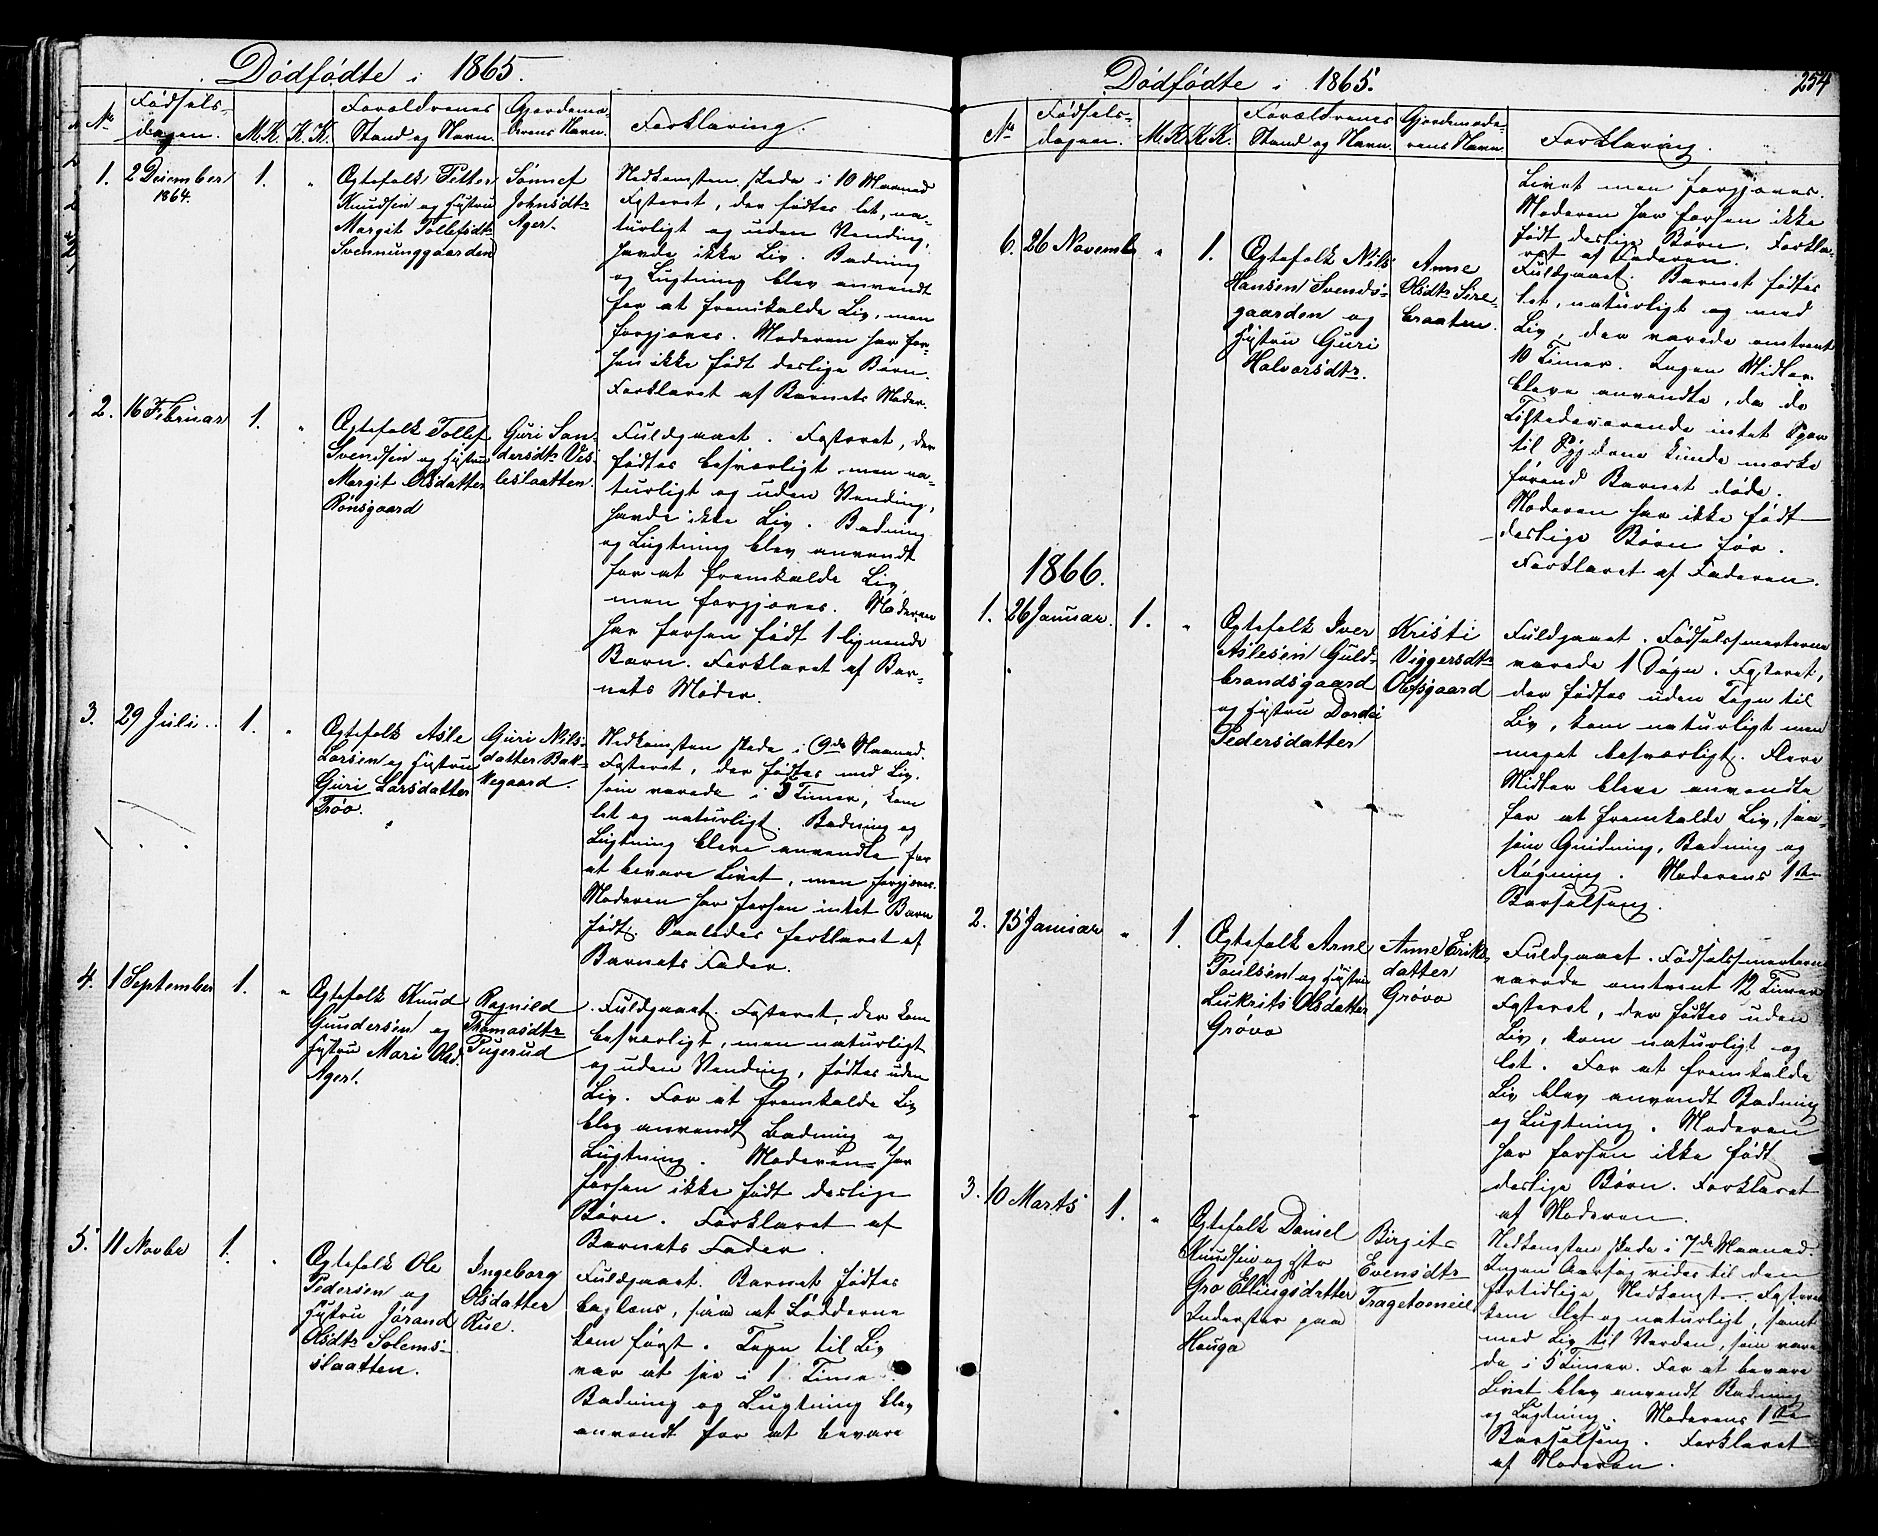 Dödfödte i 1865.
No
Födsels-
dagen.
M.K. K.K.
Forældrenes
Stand og Navn.
Gjordemo-
derens Navn.
Forklaring.
1. 2 Desember
1864.
1. "
Ægtefolk Petter
Knudsen og Hustru
Margit Tollefsdtr
Svenninggaarden
Sönnef
Johnsdtr
Ager.
Nedkomsten skede i 10 Maaned
Fosteret, der födtes let, na-
turligt og uden Vending,
havde ikke Liv. Badning
og Lugtning blev anvendt
for at fremkalde Liv, men
forgjæves. Moderen har for-
hen ikke født deslige Børn.
Forklaret af Barnets Moder.
2. 16 Februar
1. "
Ægtefolk Tollef
Svendsen og Hustru
Margit Olsdatter
Rönsgaard
Guri San-
dersdtr Ves-
leslaatten.
Fuldgaaet. Fosteret, der
födtes besværligt men na-
turligt og uden Vending,
havde ikke Liv. Badning
og Lugtning blev anvendt
for at fremkalde Liv
men forgjæves. Moderen
har forhen født 1 lignende
Barn. Forklaret af Bar-
nets Moder.
3. 29 Juli
1. "
Ægtefolk Asle
Larsen og Hustru
Guri Larsdatter
Trøo.
Guri Nils-
datter Bak-
kegaard.
Nedkomsten skede i 9de Maaned.
Fosteret, der födtes med Liv,
som varede i 3 Timer, kom
let og naturligt. Badning og
Lugtning bleve anvendte for
at bevare Livet, men forgjæves.
Moderen har forhen intet Barn
født. Saaledes forklaret af
Barnets Fader.
4. 1 September
1. "
Ægtefolk Knud
Gundersen og
Hustru Mari Olsd.
Ager.
Ragnild
Thomasdtr
Pugerud
Fuldgaaet. Fosteret, der kom
besværligt, men naturligt
og uden Vending, födtes uden
Liv. For at fremkalde Liv
blev anvendt Badning og
Lugtning. Moderen har
forhen ikke født deslige
Børn. Forklaret af
Barnets Fader.
5. 11 Novbr
1. "
Ægtefolk Ole
Pedersen og
Hustru Jörand
Olsdtr Solems-
slaatten.
Ingeborg
Olsdatter
Rue.
Fuldgaaet. Barnet födtes
baglæns, saa at Fødderne
kom først. Tegn til Liv
var at see i 1 Time.
Badning og Lugtning blev
anvendt for at bevare
Dödfödte i 1865.
254
No
Födsels-
dagen.
M.K. K.K.
Forældrenes
Stand og Navn.
Gjordemode-
rens Navn.
Forklaring.
Livet men forgjæves.
Moderen har forhen ikke
født deslige Børn. Forkla-
ret af Faderen.
6. 26 Novemb
" 1.
Ægtefolk Nils
Hansen Svends-
gaarden og
Hustru Guri
Halvorsdtr.
Anne
Olsdtr Sire-
braaten.
Fuldgaaet. Barnet födtes
let, naturligt og med
Liv, der varede omtrent
10 Timer. Ingen Midler
bleve anvendte, da de
Tilstedeværende intet Spor
til Sygdom kunde mærke
førend Barnet døde.
Moderen har ikke født
deslige Børn før.
Forklaret af Faderen.
1866.
1. 26 Januar.
1. "
Ægtefolk Iver
Aslesen Guld-
brandsgaard
og Hustru Dordei
Pedersdatter
Kristi
Viggersdtr
Olofsgaard
Fuldgaaet. Fødselssmerterne
varede 1 Døgn. Fosteret,
der födtes uden Tegn til
Liv, kom naturligt men
meget besværligt. Flere
Midler bleve anvendte
for at fremkalde Liv, saa-
som Gnidning, Badning og
Røgning. Moderens 1ste
Barselseng.
2. 15 Januar
" 1.
Ægtefolk Arne
Paulsen og Hustru
Lukrits Olsdatter
Grøvo
Anne Eriks-
datter
Grøvo
Fuldgaaet. Fødselssmerterne
varede omtrent 12 Timer
Fosteret, der födtes uden
Liv, kom naturligt og
let. For at fremkalde
Liv blev anvendt Badning
og Lugtning. Moderen
har forhen ikke født
deslige Børn. Forklaret
af Moderen.
3. 10 Marts
1. "
Ægtefolk Daniel
Knudsen og Hstr
Gro Ellingsdatter
Inderster paa
Hauga
Birgit
Evensdtr
Tragetoneie
Nedkomsten skede i 7de Maaned
Ingen Aarsag vides til den
fortidlige Nedkomst. Fosteret
kom let og naturligt, samt
med Liv til Verden, som vare-
de i 5 Timer. For at bevare
Livet blev anvendt Badning
og Lugtning. Moderens 1ste
Barselseng. Forklaret
af Moderen.